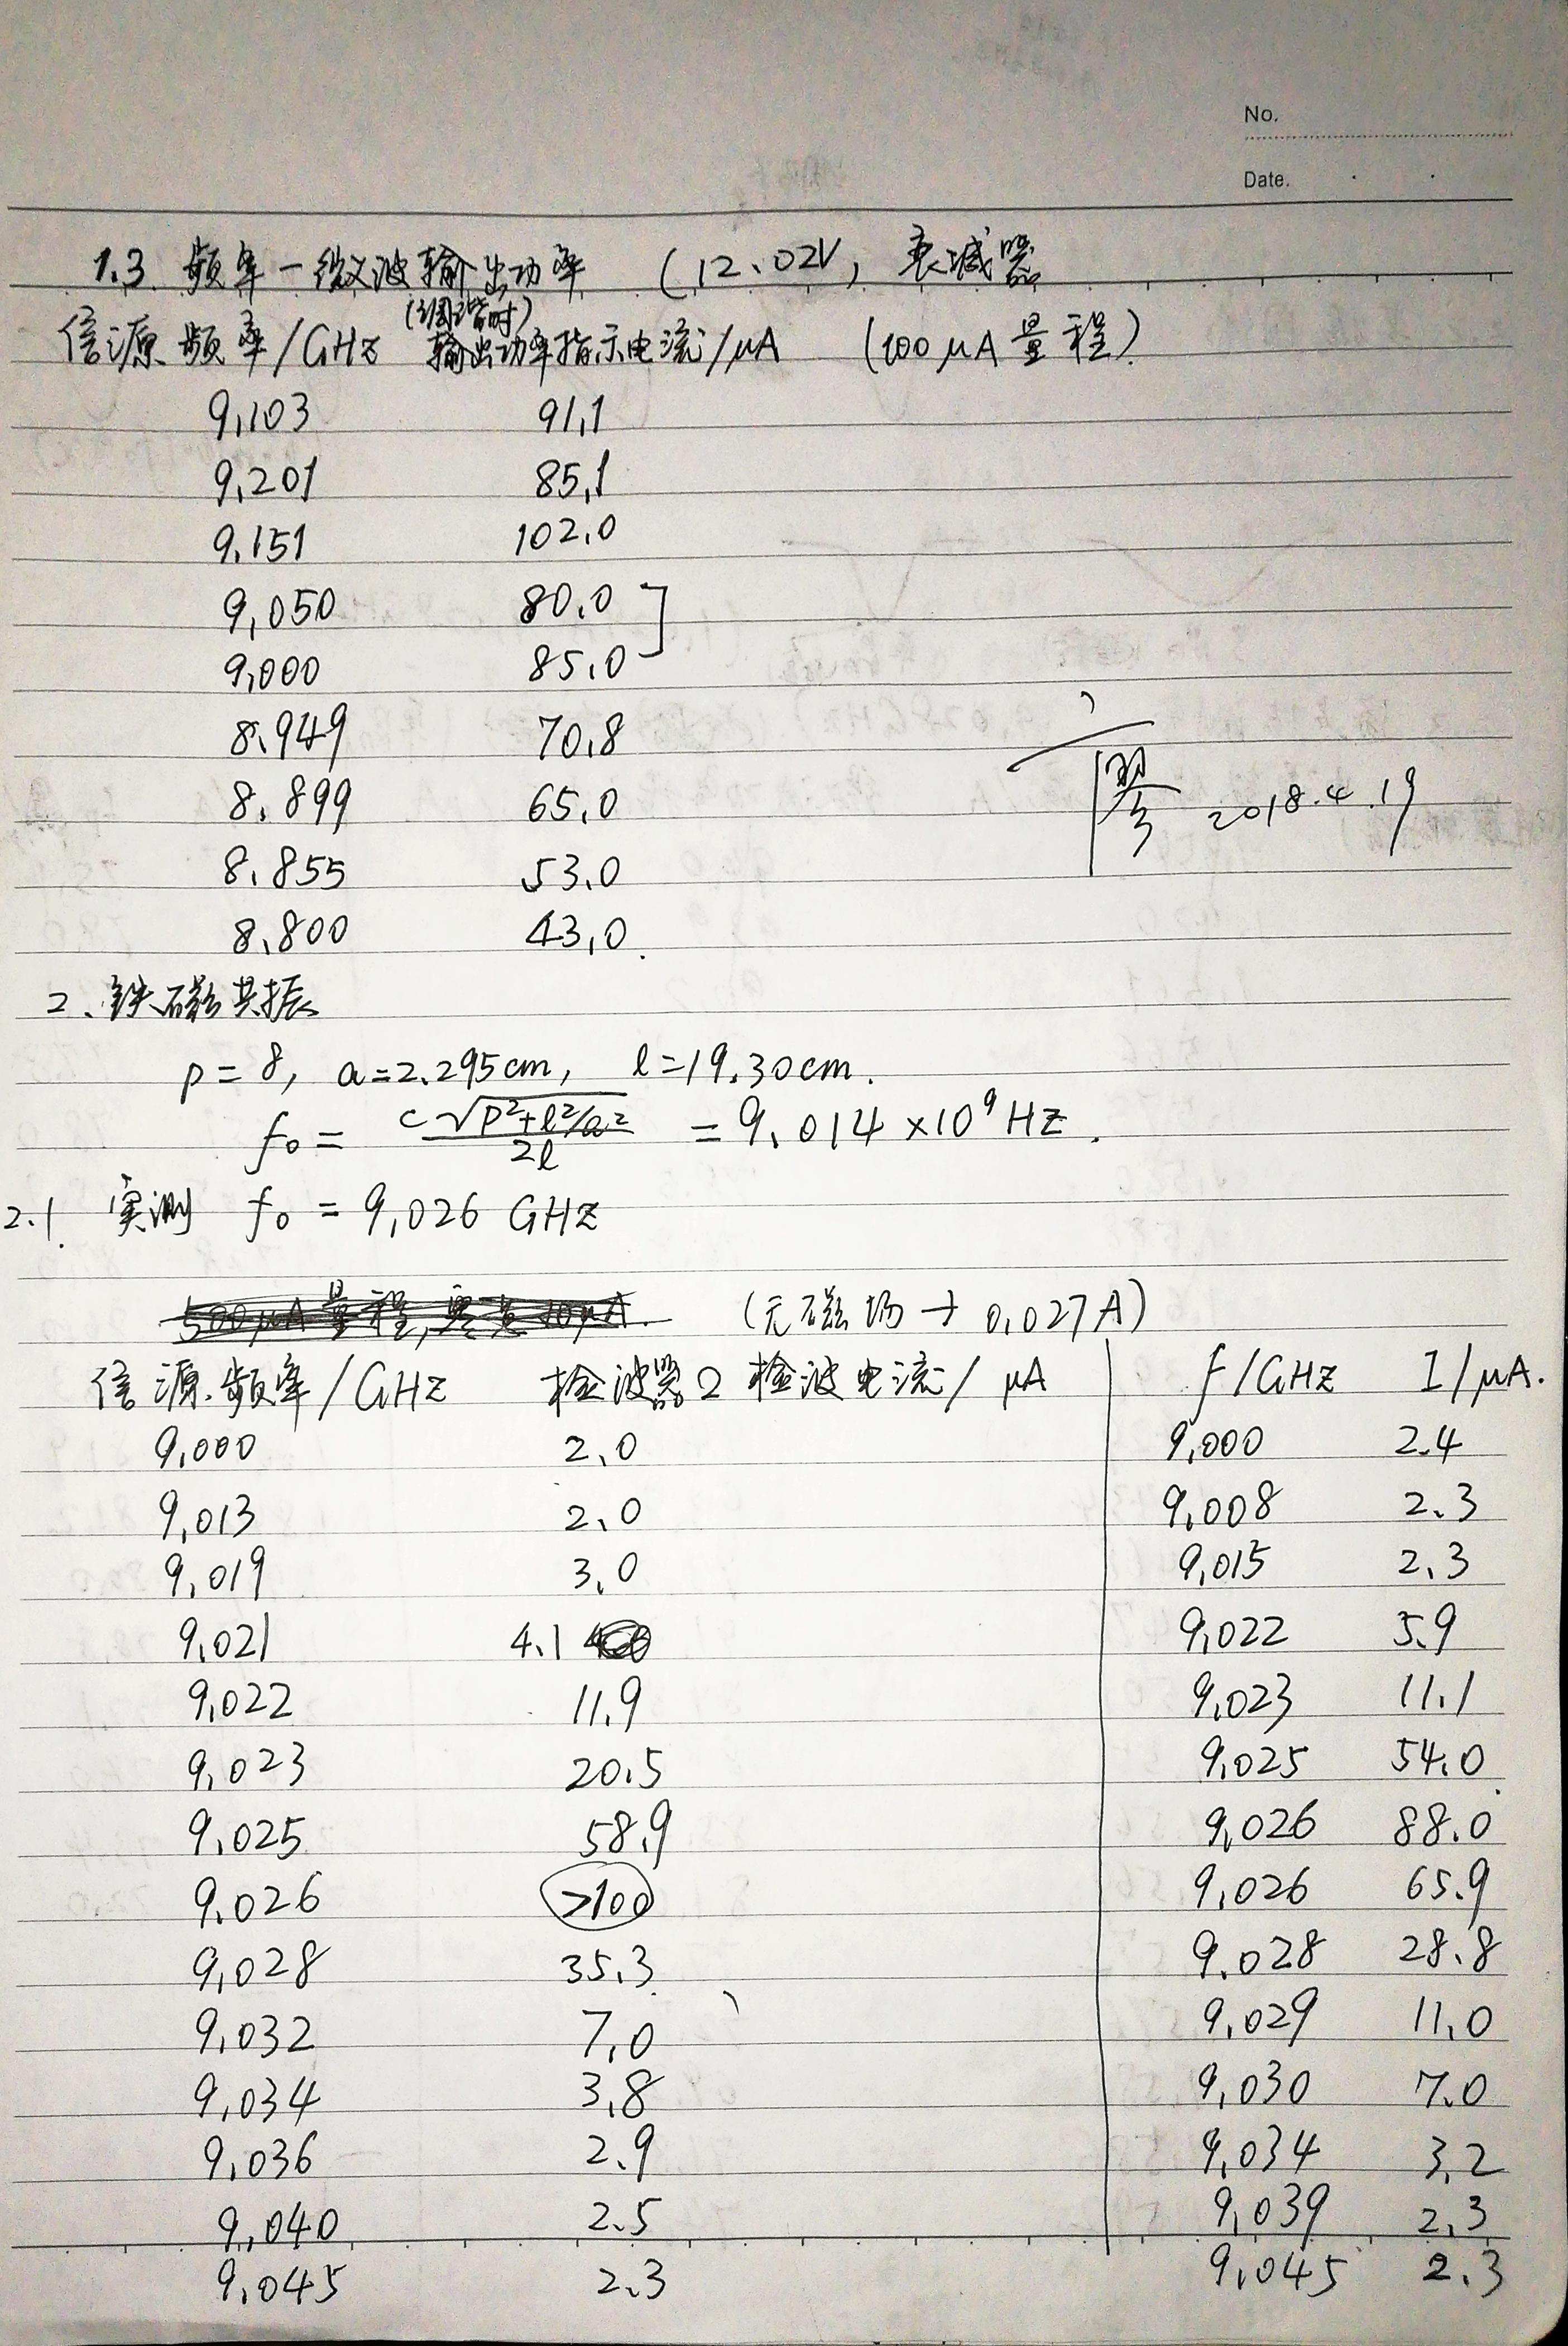 No.
Date.
1.3 频率-微波输出功率 (12.02V, 衰减器
(调谐时)
信源频率/GHz 输出功率指示电流/μA (100μA量程)
9.103 91.1
9.201 85.1
9.151 102.0
9.050 80.0
9.000 85.0
8.949 70.8
2018.4.19
8.899 65.0
8.855 53.0
8.800 43.0
2、铁磁共振
p=8, a=2.295cm, l=19.30cm.
f₀ = c√(p²+l²/a²) / 2l = 9.014×10⁹Hz.
2.1. 实测 f₀ = 9.026 GHz
(无磁场→0.027A)
信源频率/GHz 检波器2检波电流/μA
9.000 2.0
9.013 2.0
9.019 3.0
9.021 4.1
9.022 11.9
9.023 20.5
9.025 58.9
9.026 >100
9.028 35.3
9.032 7.0
9.034 3.8
9.036 2.9
9.040 2.5
9.045 2.3
f/GHz I/μA.
9.000 2.4
9.008 2.3
9.015 2.3
9.022 5.9
9.023 11.1
9.025 54.0
9.026 88.0
9.026 65.9
9.028 28.8
9.029 11.0
9.030 7.0
9.034 3.2
9.039 2.3
9.045 2.3